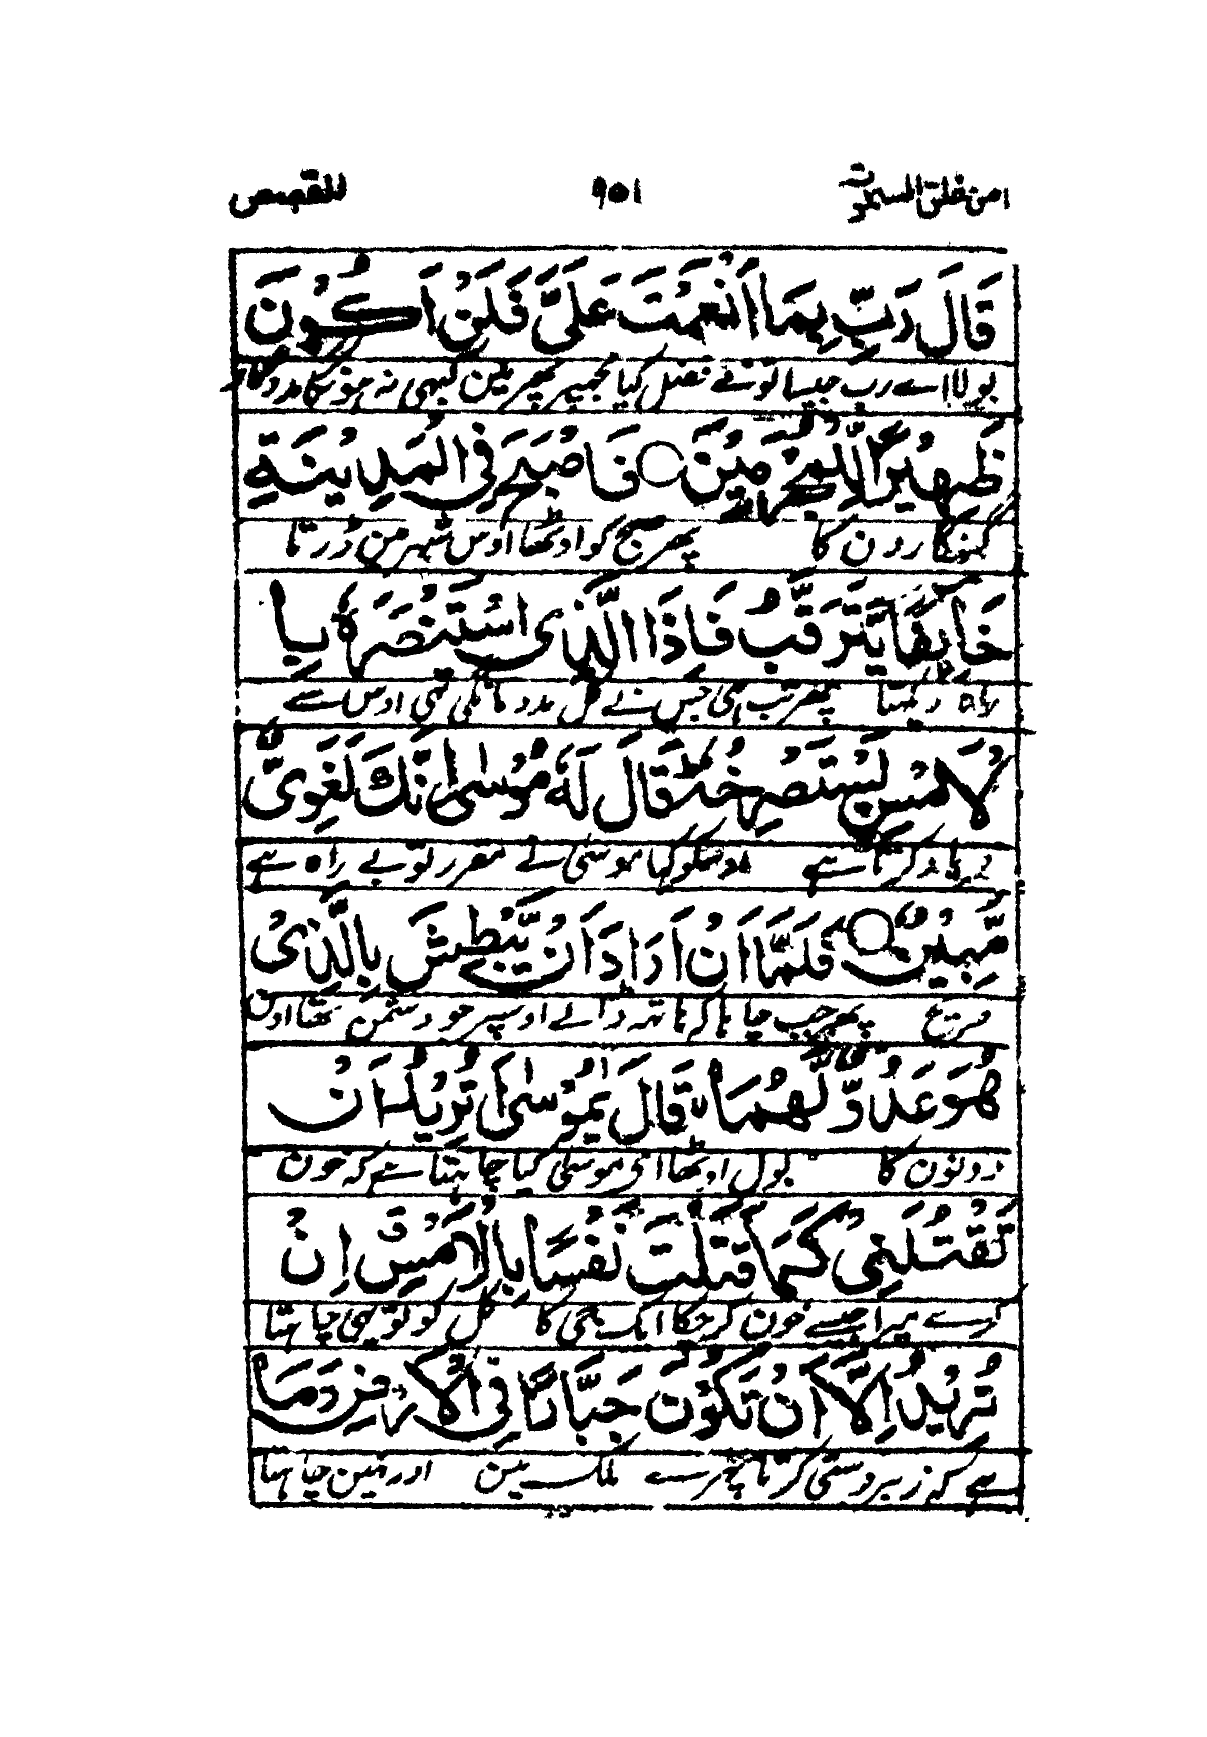 امن خلق السمٰوٰت ٩٥١ القصص
قَالَ رَبِّ بِمَا اَنْعَمْتَ عَلَىَّ فَلَنْ اَكُوْنَ
بولا اے رب جیسا تونے فضل کیا مجھپر پھر مین کبھی نہ ہونگا مددگار
ظَهِيْرًا لِّلْمُجْرِمِيْنَ ○ فَاَصْبَحَ فِى الْمَدِيْنَةِ
گنہگارون کا پھر صبح کو اوٹھا اوس شہر مین ڈرتا
خَآئِفًا يَّتَرَقَّبُ فَاِذَا الَّذِى اسْتَنْصَرَهٗ بِا
راہ دیکھتا پھر تب ہی جس نے کل مدد مانگی تھی اوس سے
لْاَمْسِ يَسْتَصْرِخُهٗ ؕ قَالَ لَهٗ مُوْسٰٓى اِنَّكَ لَغَوِىٌّ
فریاد کرتا ہے اوسکو کہا موسٰی نے مقرر تو بے راہ ہے
مُّبِيْنٌ ○ فَلَمَّآ اَنْ اَرَادَ اَنْ يَّبْطِشَ بِالَّذِىْ
صریح پھر جب چاہا کہ ہاتھ ڈالے اوسپر جو دشمن تھا اوس
هُوَ عَدُوٌّ لَّهُمَا ۙ قَالَ يٰمُوْسٰٓى اَتُرِيْدُ اَنْ
دونون کا بول اوٹھا ای موسٰی کیا چاہتا ہے کہ خون
تَقْتُلَنِىْ كَمَا قَتَلْتَ نَفْسًۢا بِالْاَمْسِ ۖ اِنْ
کرے میرا جیسے خون کرچکا ایک جی کا کل کو تو یہی چاہتا
تُرِيْدُ اِلَّآ اَنْ تَكُوْنَ جَبَّارًا فِى الْاَرْضِ وَمَا
ہے کہ زبردستی کرتا پھرے ملک مین اور نہین چاہتا